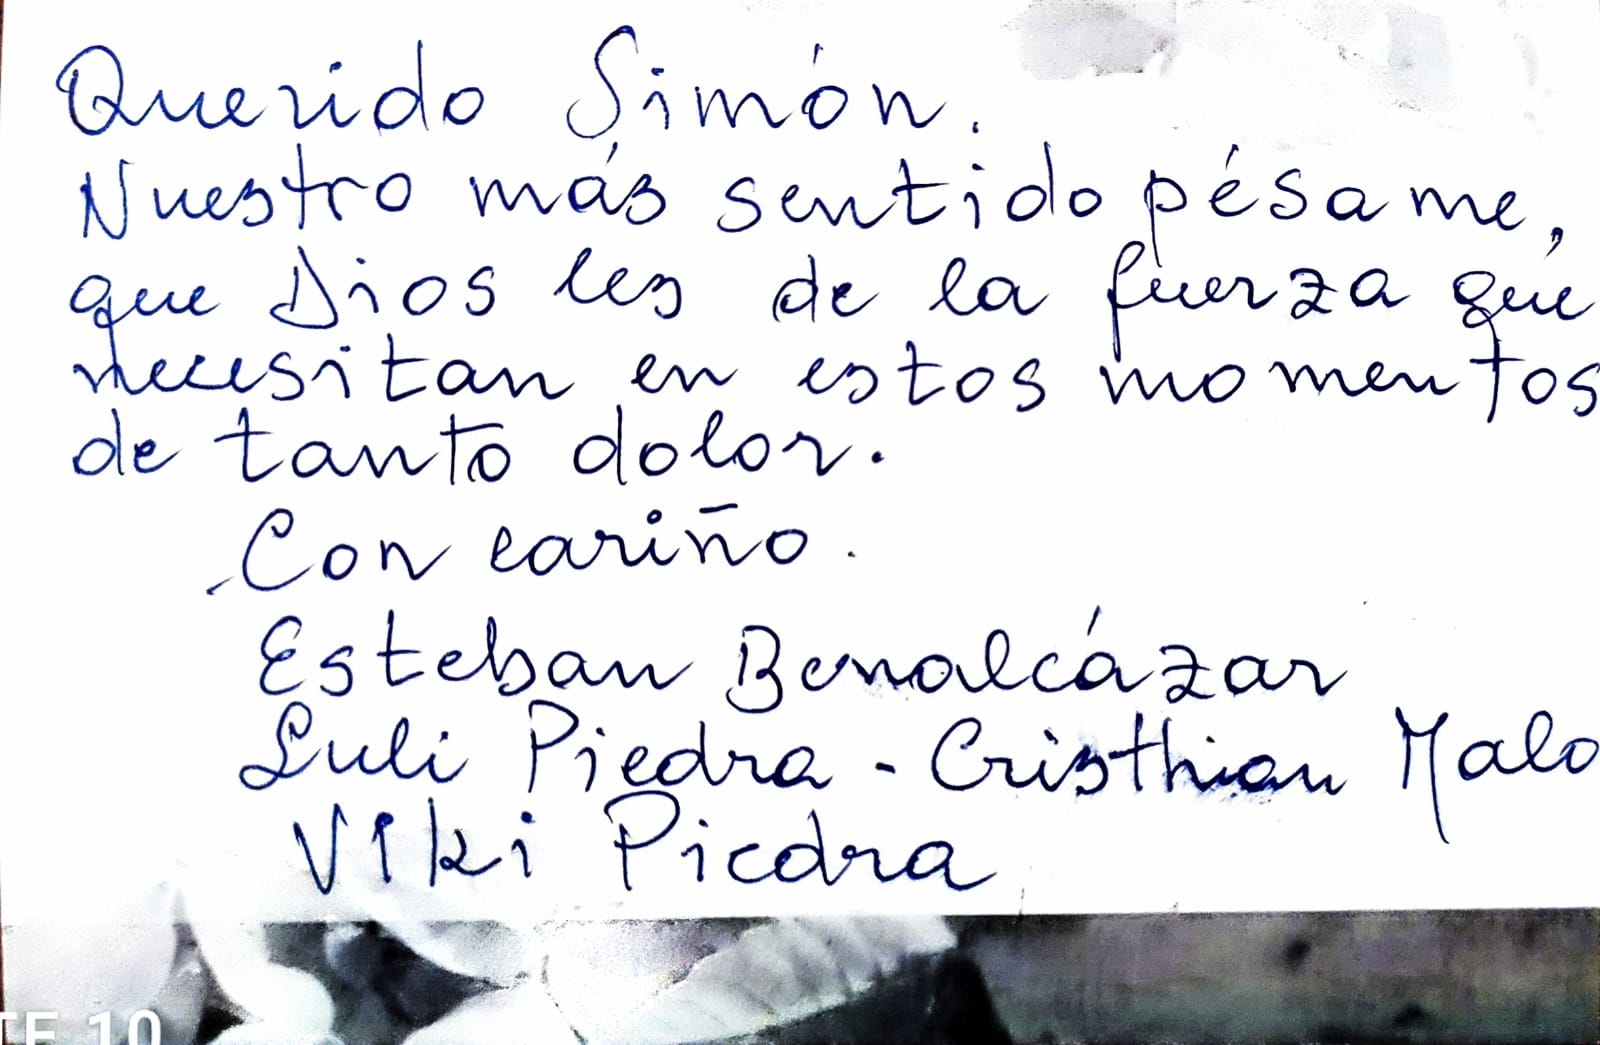 Querido Simón.
Nuestro más sentido pésame,
que Dios les de la fuerza que
necesitan en estos momentos
de tanto dolor.
Con cariño.
Esteban Benalcázar
Luli Piedra - Cristhian Malo
Viki Piedra
TE 10